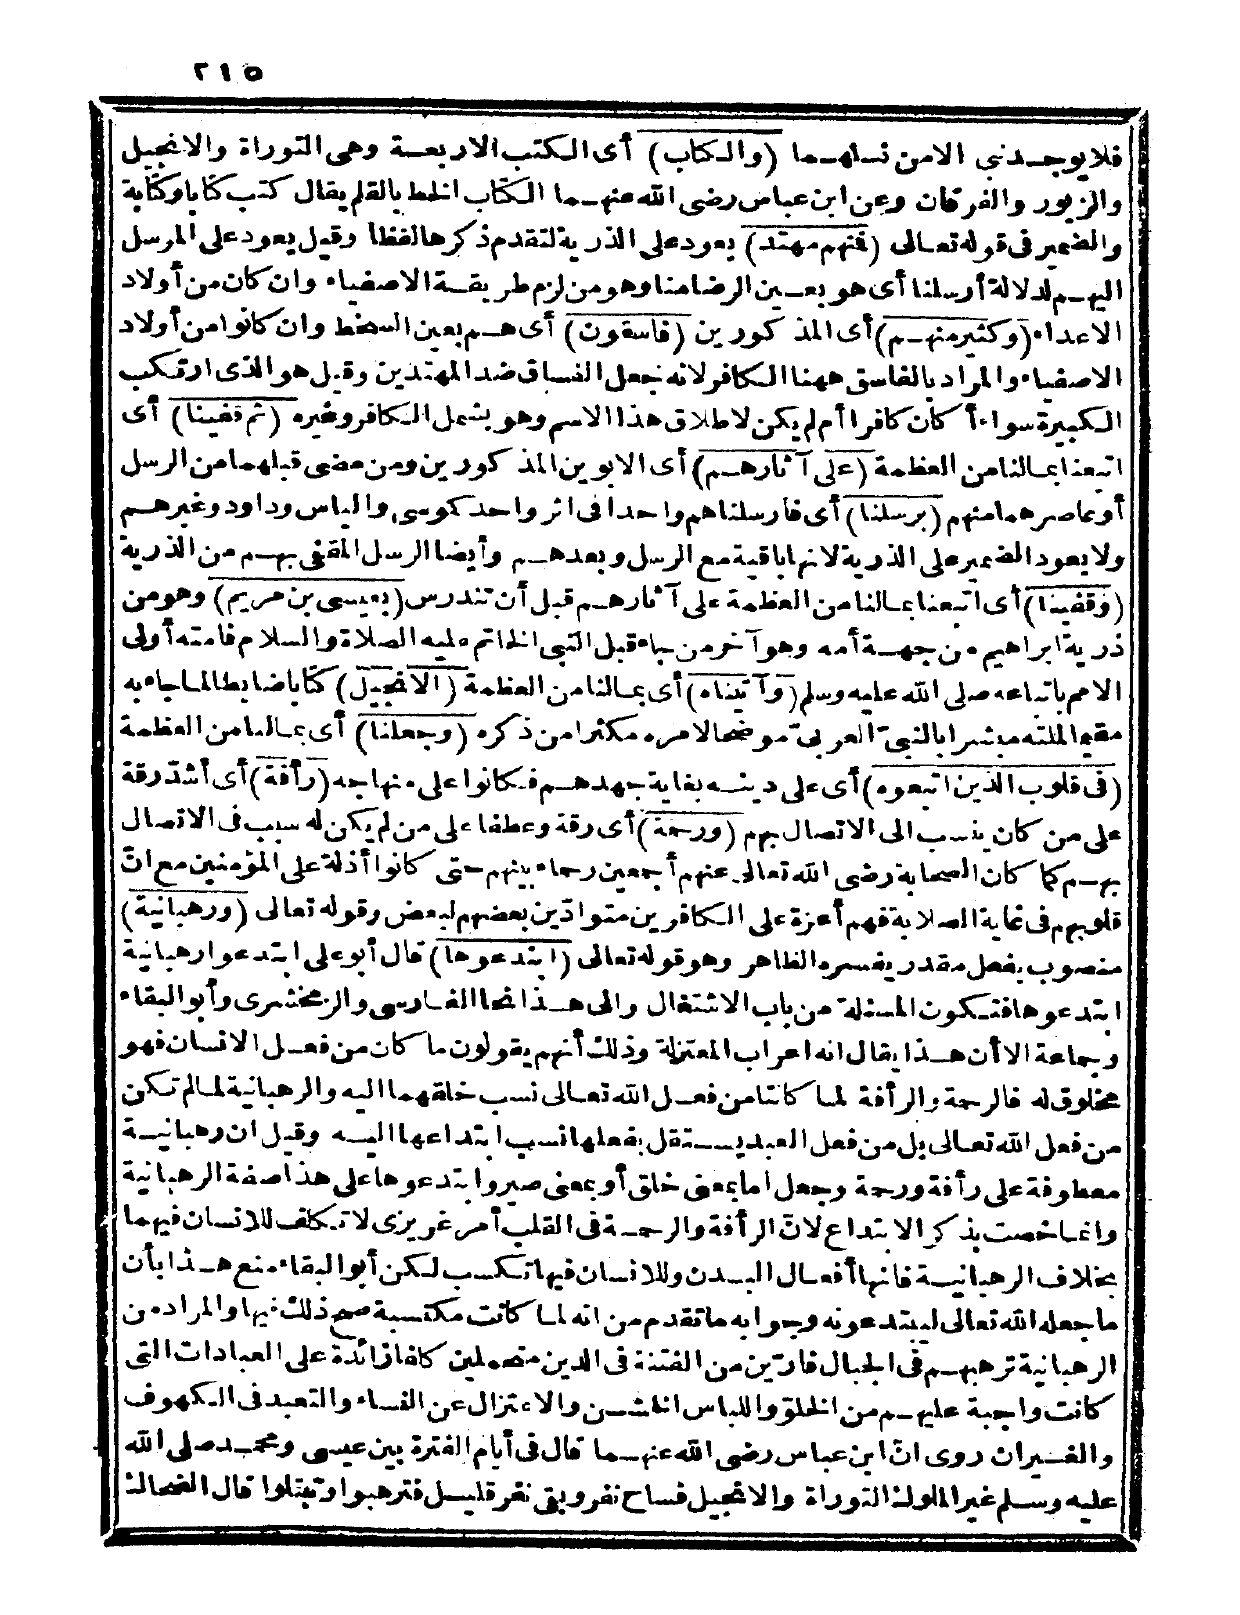 ٢١٥
فلا يوجد نبي الا من نسلهما (والكتاب) أى الكتب الاربعة وهى التوراة والانجيل
والزبور والفرقان وعن ابن عباس رضى الله عنهما الكتاب الخط بالقلم يقال كتب كتابا وكتابة
والضمير فى قوله تعالى (فمنهم مهتد) يعود على الذرية لتقدم ذكرها لفظا وقيل يعود على المرسل
اليهم لدلالة أرسلنا أى هو بعين الرضا منا وهو من لزم طريقة الاصفياء وان كان من أولاد
الاعداء (وكثير منهم) أى المذكورين (فاسقون) أى هم بعين السخط وان كانوا من أولاد
الاصفياء والمراد بالفاسق ههنا الكافر لانه جعل الفساق ضد المهتدين وقيل هو الذى ارتكب
الكبيرة سواء أكان كافرا أم لم يكن لاطلاق هذا الاسم وهو يشمل الكافر وغيره (ثم قفينا) أى
اتبعنا بمالنا من العظمة (على آثارهم) أى الابوين المذكورين ومن مضى قبلهما من الرسل
أو عاصرهما منهم (برسلنا) أى فارسلناهم واحدا فى اثر واحد كموسى والياس وداود وغيرهم
ولا يعود الضمير على الذرية لانها باقية مع الرسل وبعدهم وأيضا الرسل المقفى بهم من الذرية
(وقفينا) أى اتبعنا بمالنا من العظمة على آثارهم قبل أن تندرس (بعيسى بن مريم) وهو من
ذرية ابراهيم من جهة أمه وهو آخر من جاء قبل النبى الخاتم عليه الصلاة والسلام فامته أولى
الامم باتباعه صلى الله عليه وسلم (وآتيناه) أى بمالنا من العظمة (الانجيل) كتابا ضابطا لما جاء به
مقيما لملته مبشرا بالنبىّ العربىّ موضحا لامره مكثرا من ذكره (وجعلنا) أى بمالنا من العظمة
(فى قلوب الذين اتبعوه) أى على دينه بغاية جهدهم فكانوا على منهاجه (رأفة) أى أشدّ رقة
على من كان ينسب الى الاتصال بهم (ورحمة) أى رقة وعطفا على من لم يكن له سبب فى الاتصال
بهم كما كان الصحابة رضى الله تعالى عنهم أجمعين رحماء بينهم حتى كانوا أذلة على المؤمنين مع انّ
قلوبهم فى غاية الصلابة فهم أعزة على الكافرين متوادّين بعضهم لبعض وقوله تعالى (ورهبانية)
منصوب بفعل مقدر يفسره الظاهر وهو قوله تعالى (ابتدعوها) قال أبو على ابتدعوا رهبانية
ابتدعوها فتكون المسئلة من باب الاشتغال والى هذا نحا الفارسى والزمخشرى وأبو البقاء
وجماعة الا أن هذا يقال انه اعراب المعتزلة وذلك أنهم يقولون ما كان من فعل الانسان فهو
مخلوق له فالرحمة والرأفة لما كانتا من فعل الله تعالى نسب خلقهما اليه والرهبانية لما لم تكن
من فعل الله تعالى بل من فعل العبد يستقل بفعلها نسب ابتداعها اليه وقيل ان رهبانية
معطوفة على رأفة ورحمة وجعل اما بمعنى خلق أو بمعنى صير وابتدعوها على هذا صفة الرهبانية
وانما خصت بذكر الابتداع لانّ الرأفة والرحمة فى القلب أمر غريزى لا تكلف للانسان فيهما
بخلاف الرهبانية فانها أفعال البدن وللانسان فيها تكسب لكن أبو البقاء منع هذا بأن
ما جعله الله تعالى لا يبتدعونه وجوابه ما تقدم من انه لما كانت مكتسبة صح ذلك فيها والمراد من
الرهبانية ترهبهم فى الجبال فارّين من الفتنة فى الدين متحملين كلفا زائدة على العبادات التى
كانت واجبة عليهم من الخلوة واللباس الخشن والاعتزال عن النساء والتعبد فى الكهوف
والغيران روى انّ ابن عباس رضى الله عنهما قال فى أيام الفترة بين عيسى ومحمد صلى الله
عليه وسلم غير الملوك التوراة والانجيل فساح نفر وبقى نفر قليل فترهبوا وتبتلوا قال الضحاك